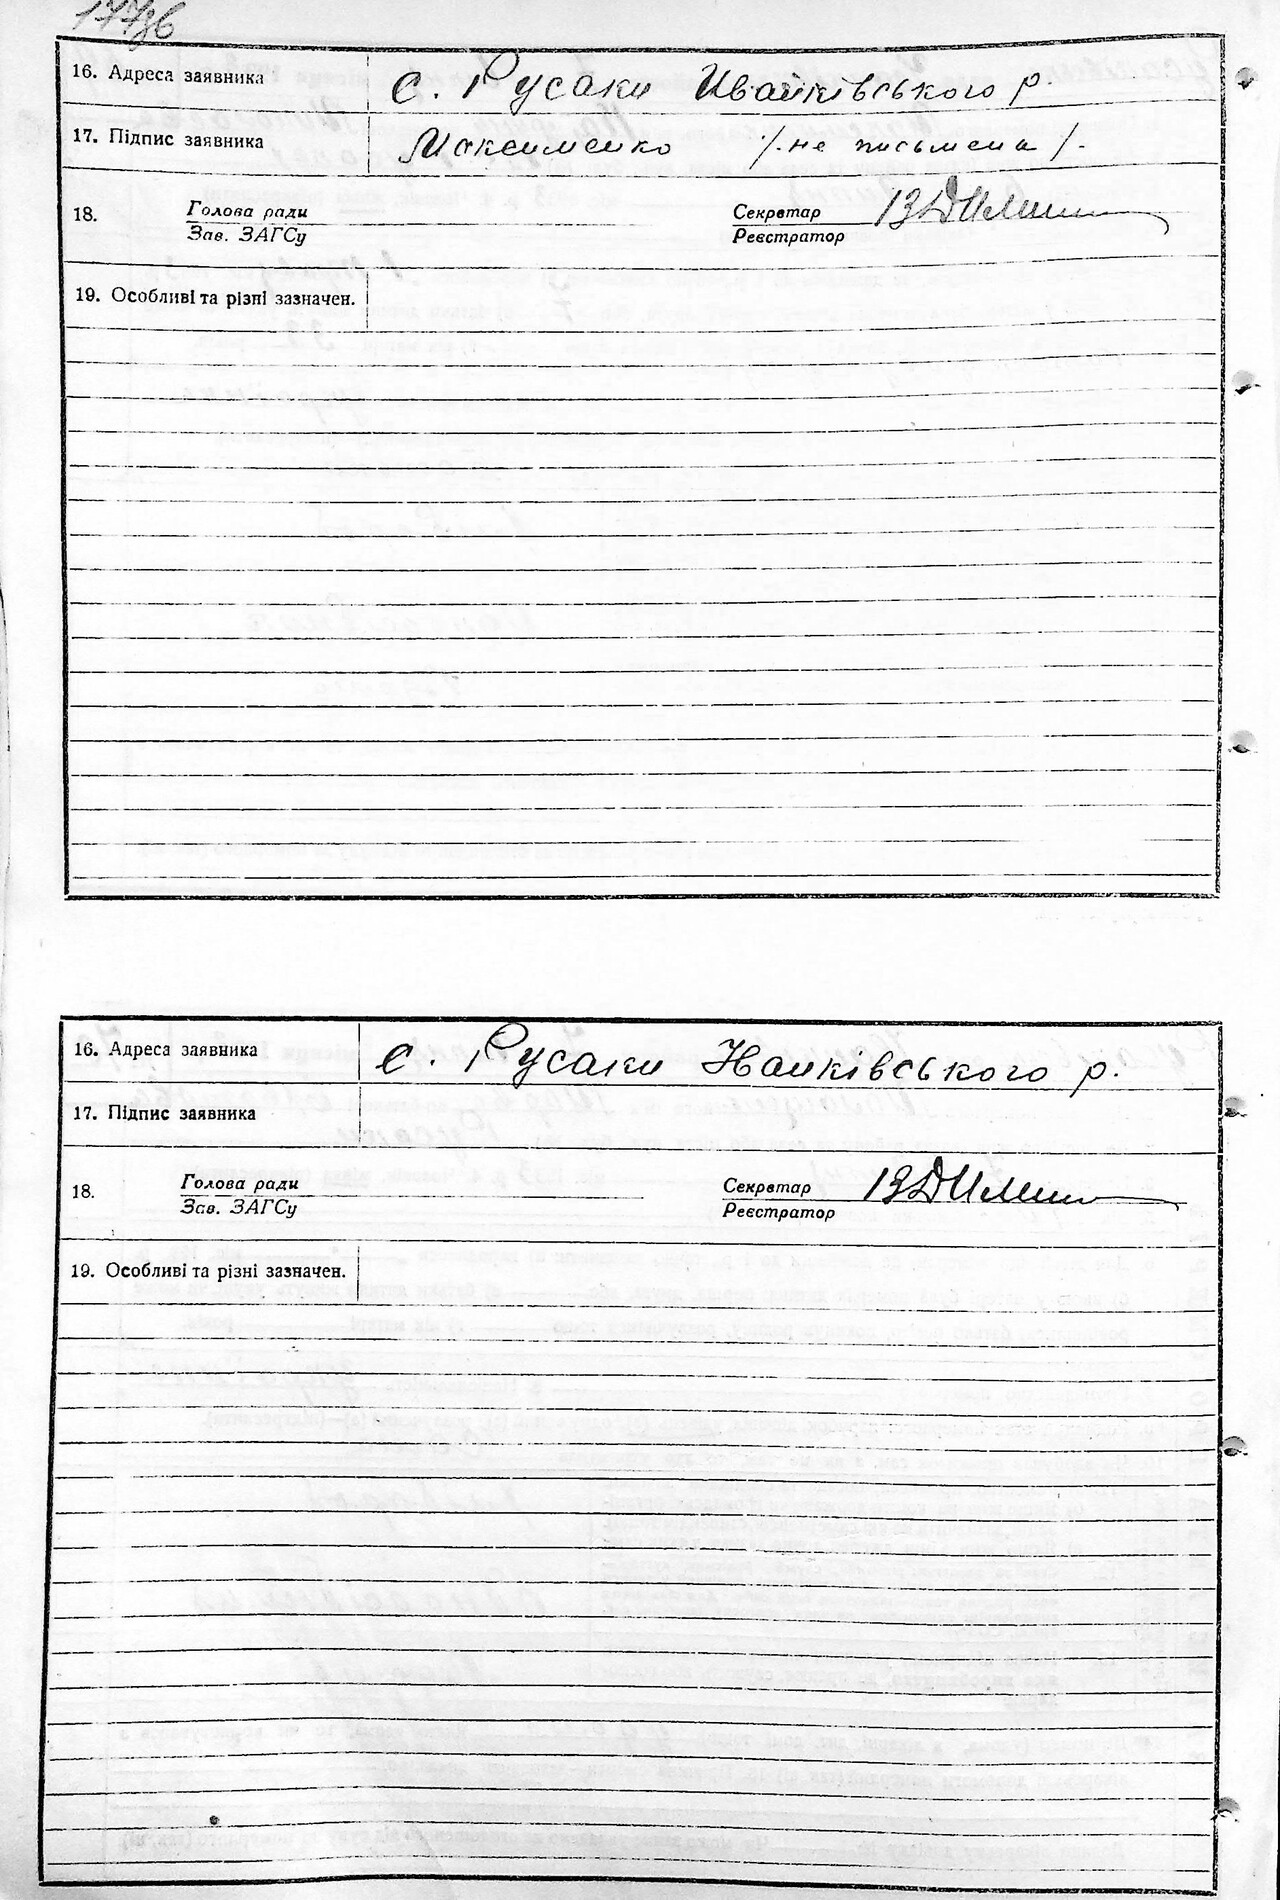 177зв
16. Адреса заявника с. Русаки Иванківського р.
17. Підпис заявника Максименко /-не письмена/-
18. Голова ради Секретар
Зав. ЗАГСу Реєстратор
19. Особливі та різні зазначен.
16. Адреса заявника с. Русаки Иванківського р.
17. Підпис заявника
18. Голова ради Секретар
Зав. ЗАГСу Реєстратор
19. Особливі та різні зазначен.